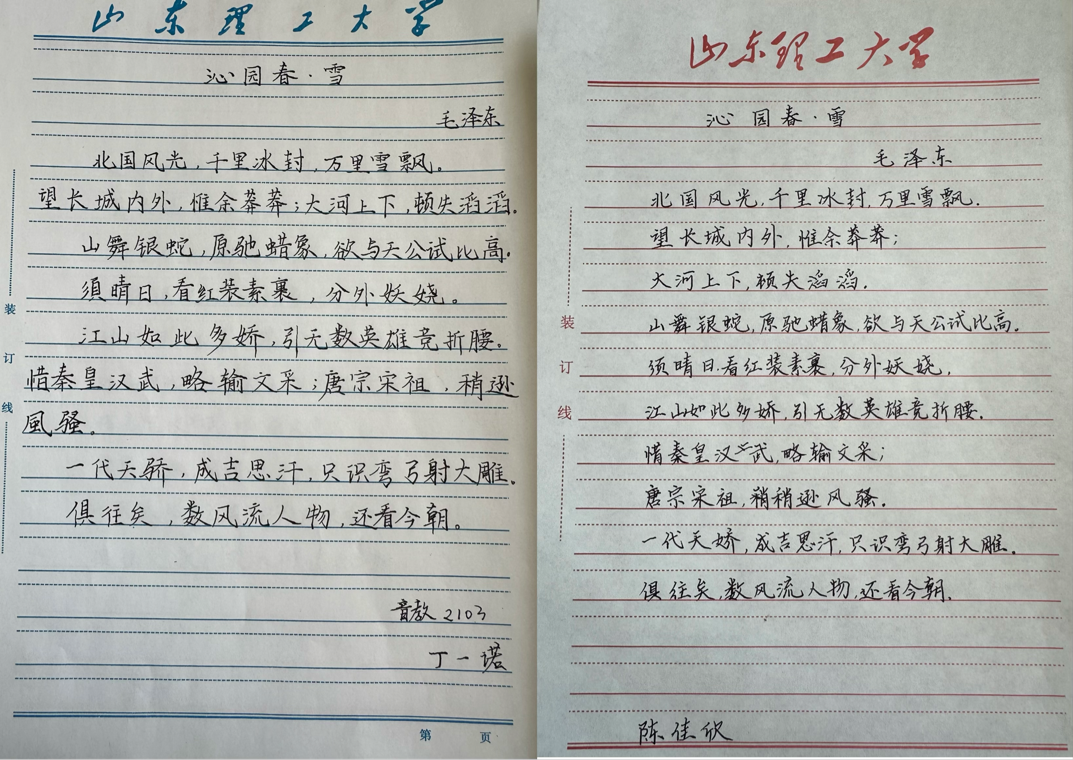 山东理工大学
沁园春·雪
毛泽东
北国风光,千里冰封,万里雪飘。
望长城内外,惟余莽莽;大河上下,顿失滔滔.
山舞银蛇,原驰蜡象,欲与天公试比高.
须晴日,看红装素裹,分外妖娆。
江山如此多娇,引无数英雄竞折腰.
惜秦皇汉武,略输文采;唐宗宋祖,稍逊
風骚.
一代天骄,成吉思汗,只识弯弓射大雕.
俱往矣,数风流人物,还看今朝。
音教2103
丁一塔
第 页
装
订
线
山东理工大学
沁园春·雪
毛泽东
北国风光,千里冰封,万里雪飘.
望长城内外,惟余莽莽;
大河上下,顿失滔滔.
山舞银蛇,原驰蜡象,欲与天公试比高.
须晴日.看红装素裹,分外妖娆.
江山如此多娇,引无数英雄竞折腰.
惜秦皇汉武,略输文采;
唐宗宋祖,稍稍逊风骚.
一代天娇,成吉思汗,只识弯弓射大雕.
俱往矣,数风流人物,还看今朝.
陈佳欣
装
订
线